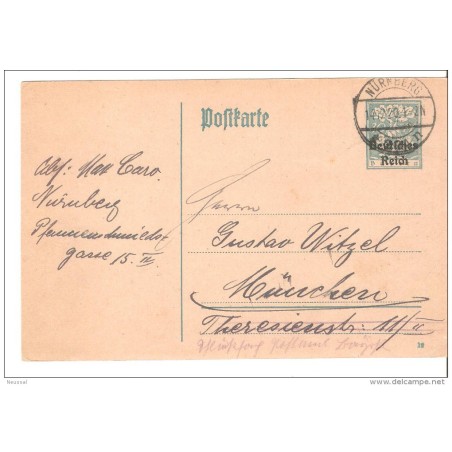 NÜRNBERG
Postkarte
Deutsches
Reich
Abs: Max Caro.
Nürnberg
Pfannenschmieds-
gasse 15. II.
Herrn
Gustav Witzel
München
Theresienstr. 11/II
38
Neussal
delcampe.net